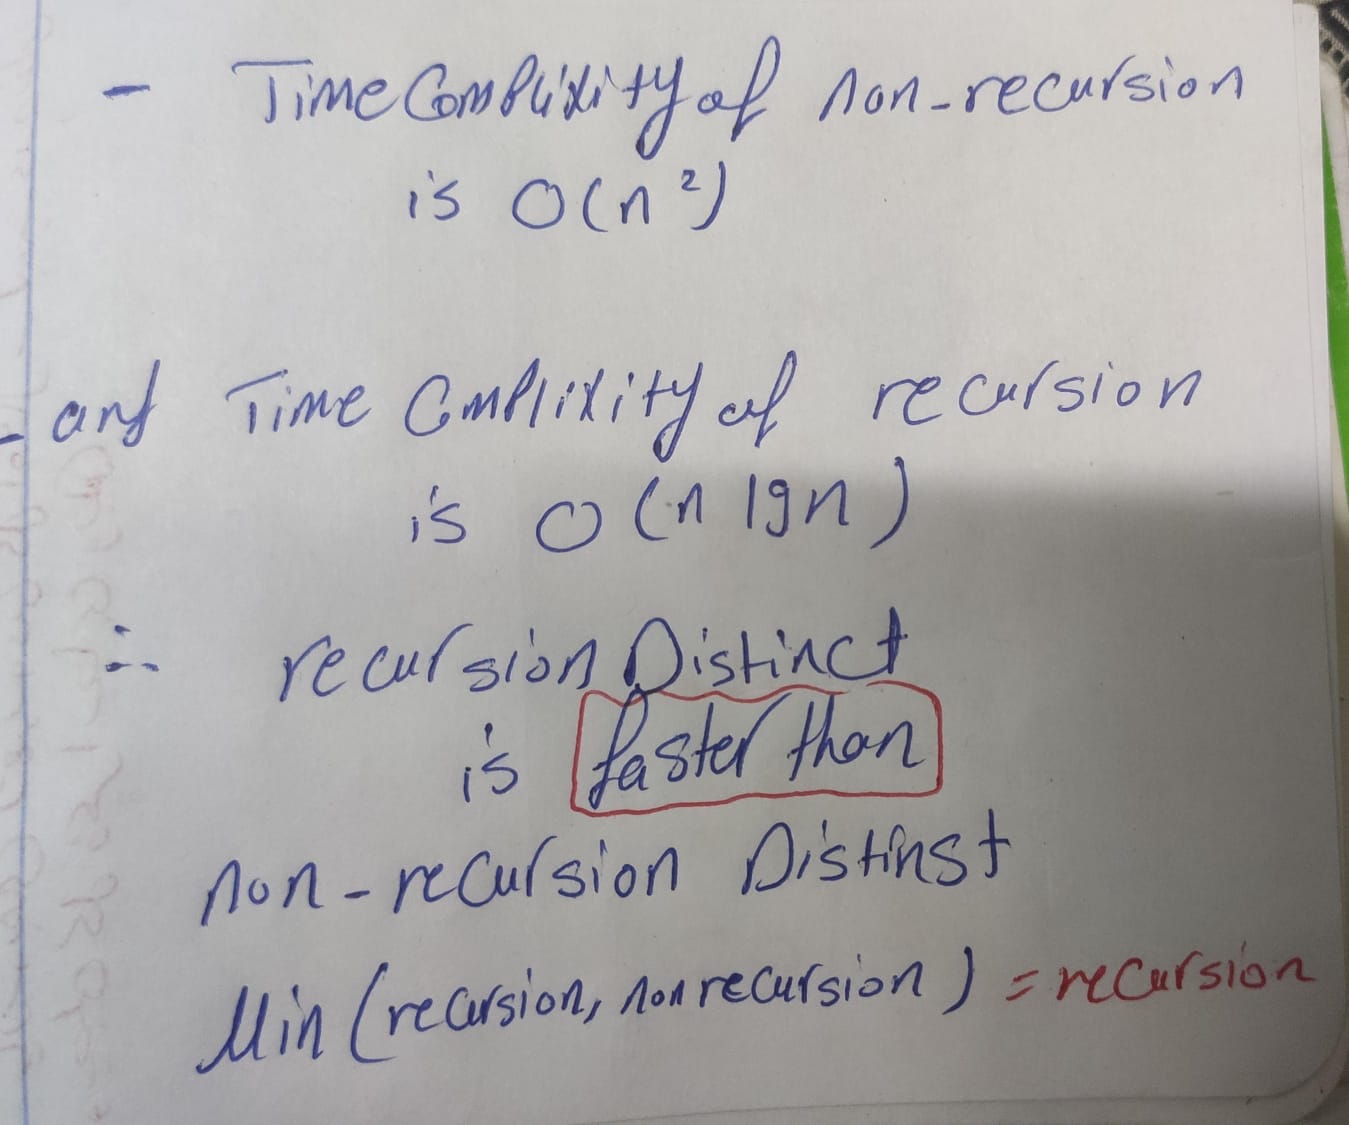 - Time Complixity of non-recursion
is O(n²)
- and Time Complixity of recursion
is O(n lgn)
∴ recursion Distinct
is faster than
non-recursion Distinst
Min (recursion, non recursion) = recursion